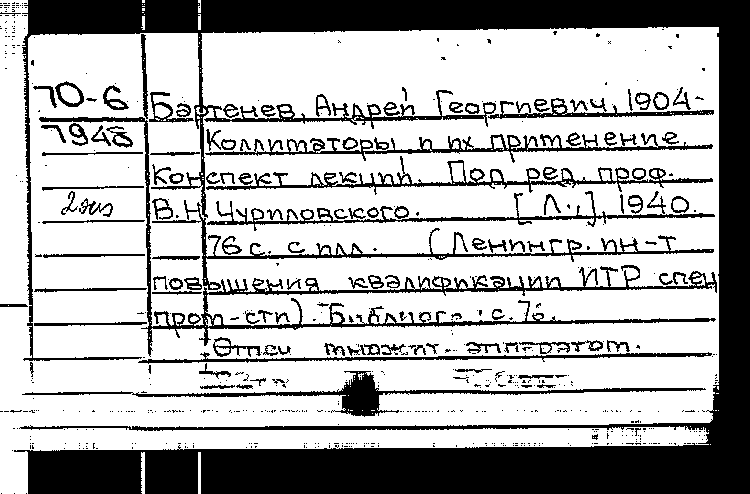 70-6 Бартенев, Андрей Георгиевич, 1904-
7948 Коллиматоры и их применение.
Конспект лекций. Под ред. проф.
2 экз В.Н. Чуриловского. [Л.,], 1940.
76 с. с илл. (Ленингр. ин-т
повышения квалификации ИТР спец
пром-сти). Библиогр.: с. 76.
Отпеч множит. аппаратом.